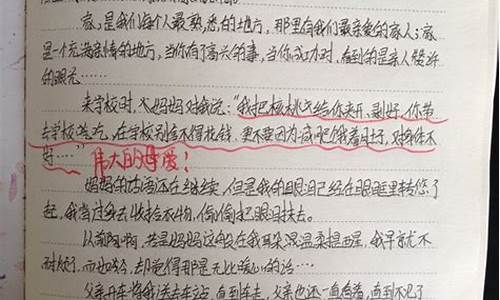 家,是我们每个人最熟悉的地方,那里有我们最亲爱的家人;家
是一个充满亲情的地方,当你有了高兴的事,当你成功时,看到的是亲人赞许
的眼光……
来学校时,妈妈对我说:“我把核桃给你夹开、剥好,你带
去学校吃,在学校别舍不得花钱,更不要因为减肥饿着肚子,对身体不
好……” 伟大的母爱!
妈妈的话还在继续,但是我的眼泪已经在眼眶里转悠了
起,我背过身去收拾衣物,偷偷把眼泪抹去。
以前啊,若是妈妈这般在我耳朵温柔提醒,我早就不
耐烦了,而如今,却觉得那是无比暖心的话……
父亲开车将我送去车站,直到车走,父亲也还一直看着,直到不见了